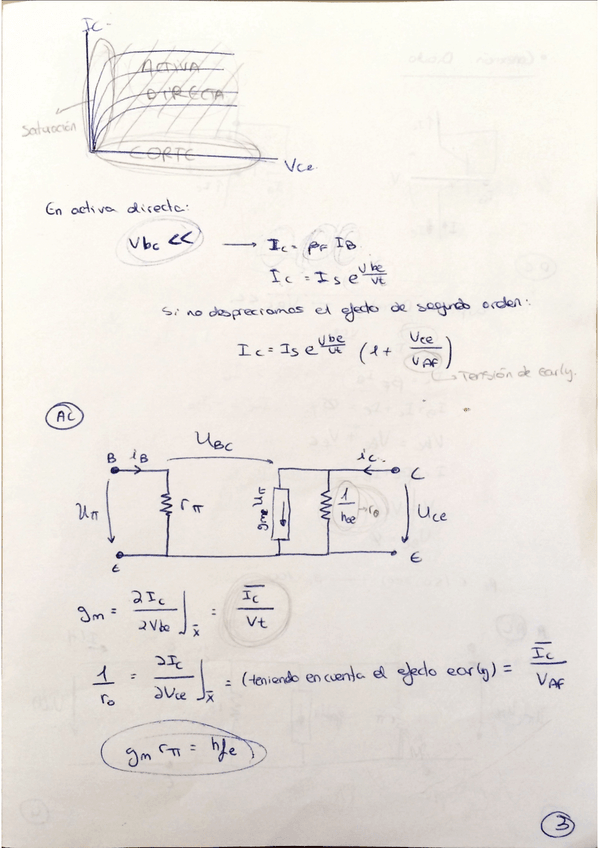 Ic
ACTIVA
DIRECTA
Saturación
CORTE
Vce
En activa directa:
Vbc << → Ic = βF IB
Ic = Is e^(Vbe/Vt)
Si no despreciamos el efecto de segundo orden:
Ic = Is e^(Vbe/Vt) (1 + Vce/VAF)
↳ Tensión de early.
AC
B iB UBC ic C
Uπ rπ gm Uπ 1/hoe → ro Uce
E E
gm = ∂Ic/∂Vbe ]x̄ = Īc/Vt
1/ro = ∂Ic/∂Vce ]x̄ = (teniendo en cuenta el efecto early) = Īc/VAF
gm rπ = hfe
3